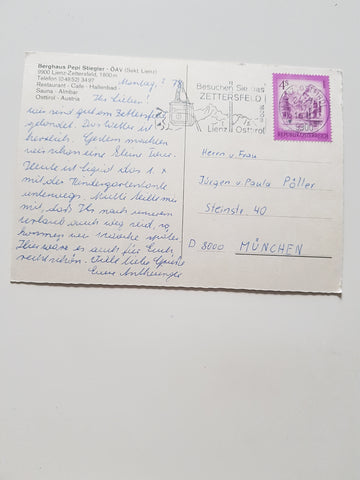 Berghaus Pepi Stiegler - ÖAV (Sekt. Lienz)
9900 Lienz-Zettersfeld, 1800 m
Telefon (04852) 3497
Restaurant - Cafe - Hallenbad -
Sauna - Almbar
Osttirol - Austria
Montag,
Ihr Lieben!
wir sind gut am Zettersfeld
gelandet. Das Wetter ist
herrlich. Gestern machten
wir schon eine kleine Tour.
Heute ist Sigrid das 1. x
mit der Kindergartenkarte
unterwegs. Mutti teilte mir
mit, daß Ihr nach unserem
Urlaub auch weg seid, so
kommen wir später.
Hier wäre es auch für Euch
recht schön. Viele liebe Grüße
Eure
Besuchen Sie das
ZETTERSFELD
Lienz Osttirol
4 S
REPUBLIK ÖSTERREICH
Herrn u. Frau
Jürgen u. Paula Pöller
Steinstr. 40
D 8000 MÜNCHEN